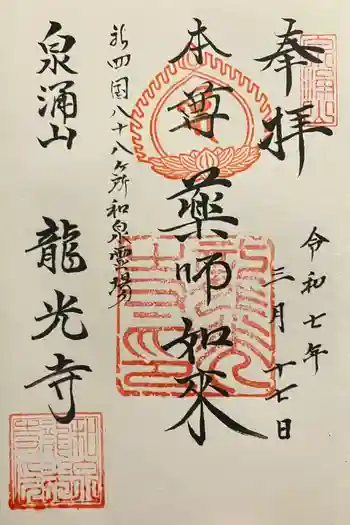 奉拝
令和七年
三月十七日
本尊 薬師如来
新四国八十八ヶ所和泉霊場
泉涌山
龍光寺